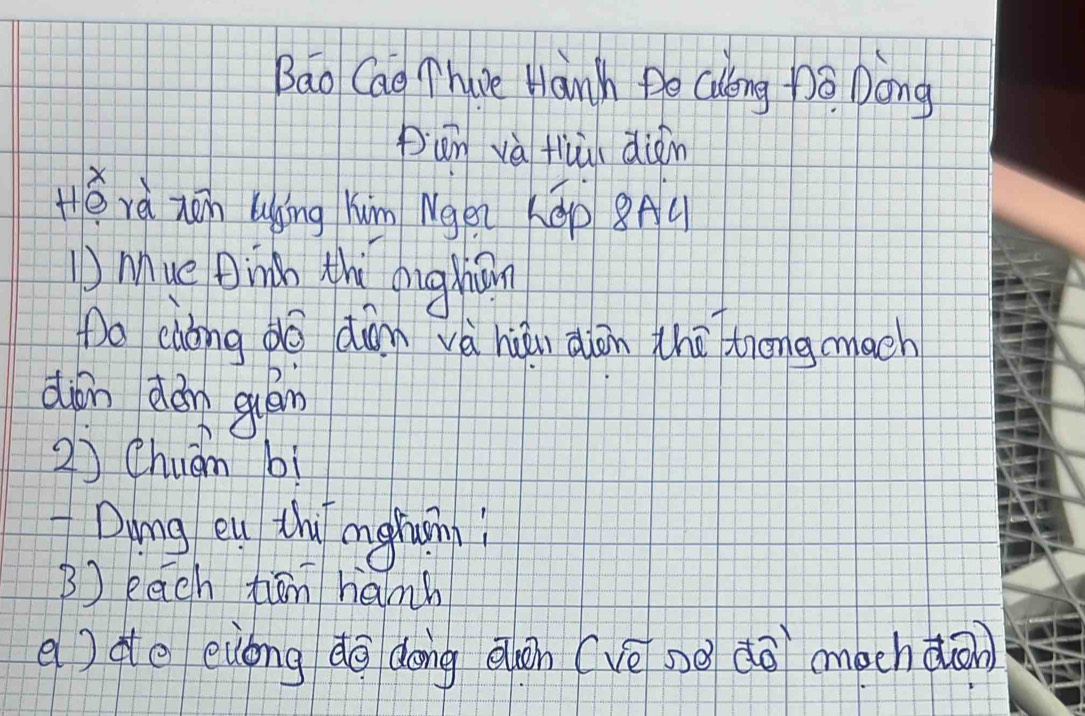 Báo Cáo Thực Hành Đo Cường Độ Dòng
Điện và Hiệu điện
Hộ và tên Lương Kim Ngọc Lớp 8A4
1) Mục Đính thí nghiệm
Đo cường độ điện và hiệu điện thế trong mạch
điện đơn giản
2) Chuẩn bị
- Dụng cụ thí nghiệm:
3) cách tiến hành
a) đo cường độ dòng điện (vẽ sơ đồ mạch điện)